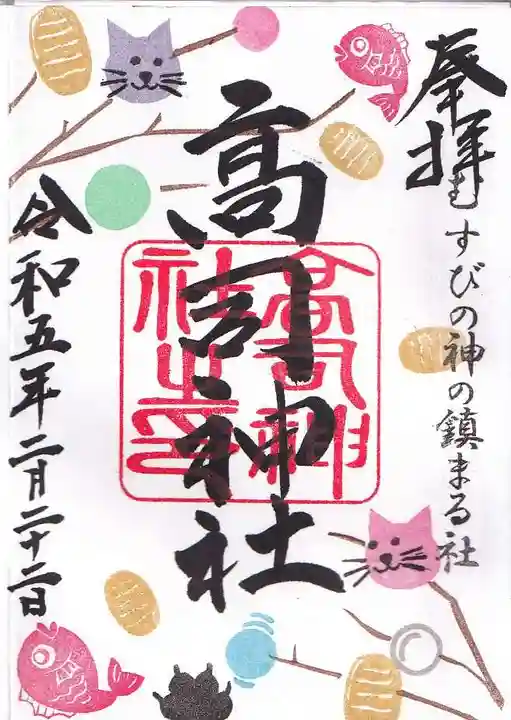 奉拝
むすびの神の鎮まる社
高司神社
高司神社之印
令和五年二月二十二日